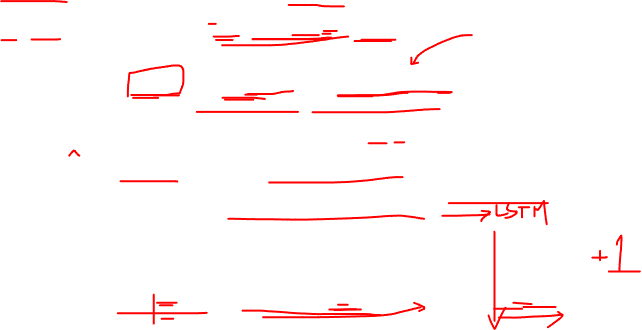 LSTM
+1